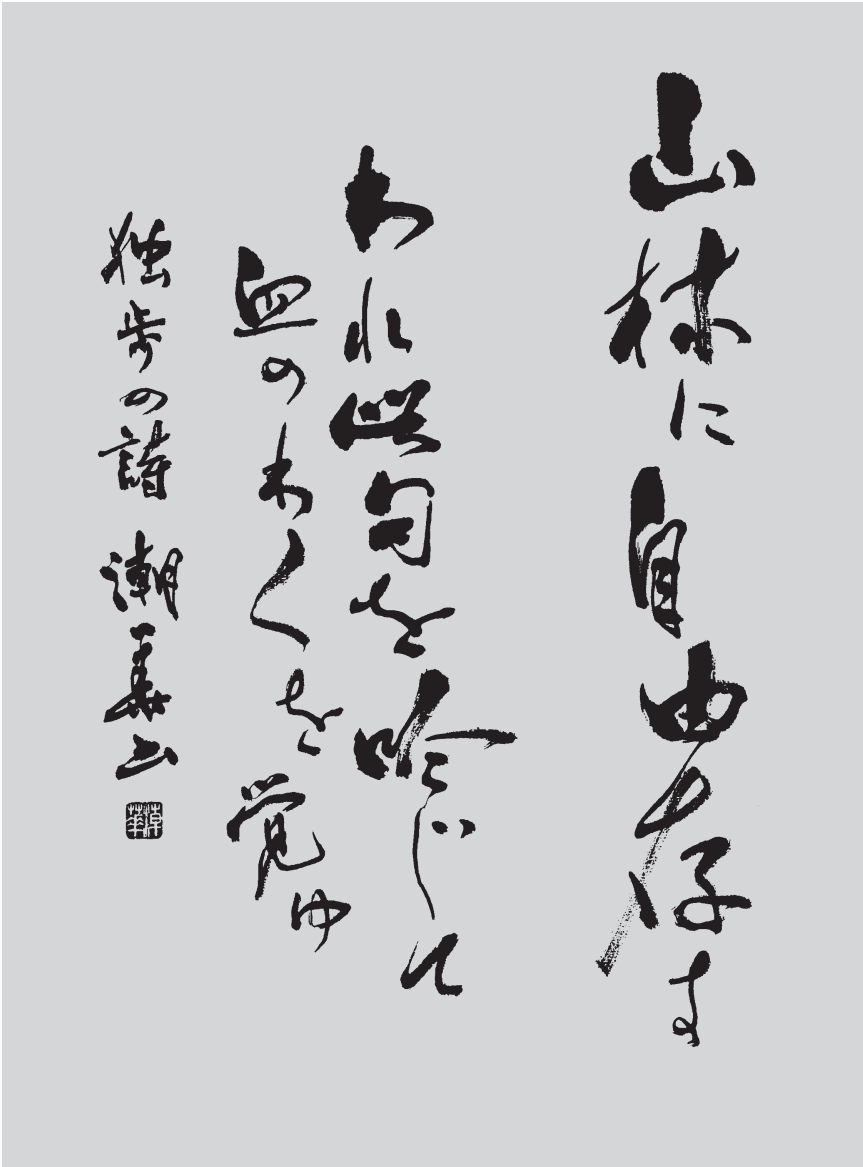 山林に自由存す
われ此句を吟じて
血のわくを覚ゆ
独歩の詩 潮華書